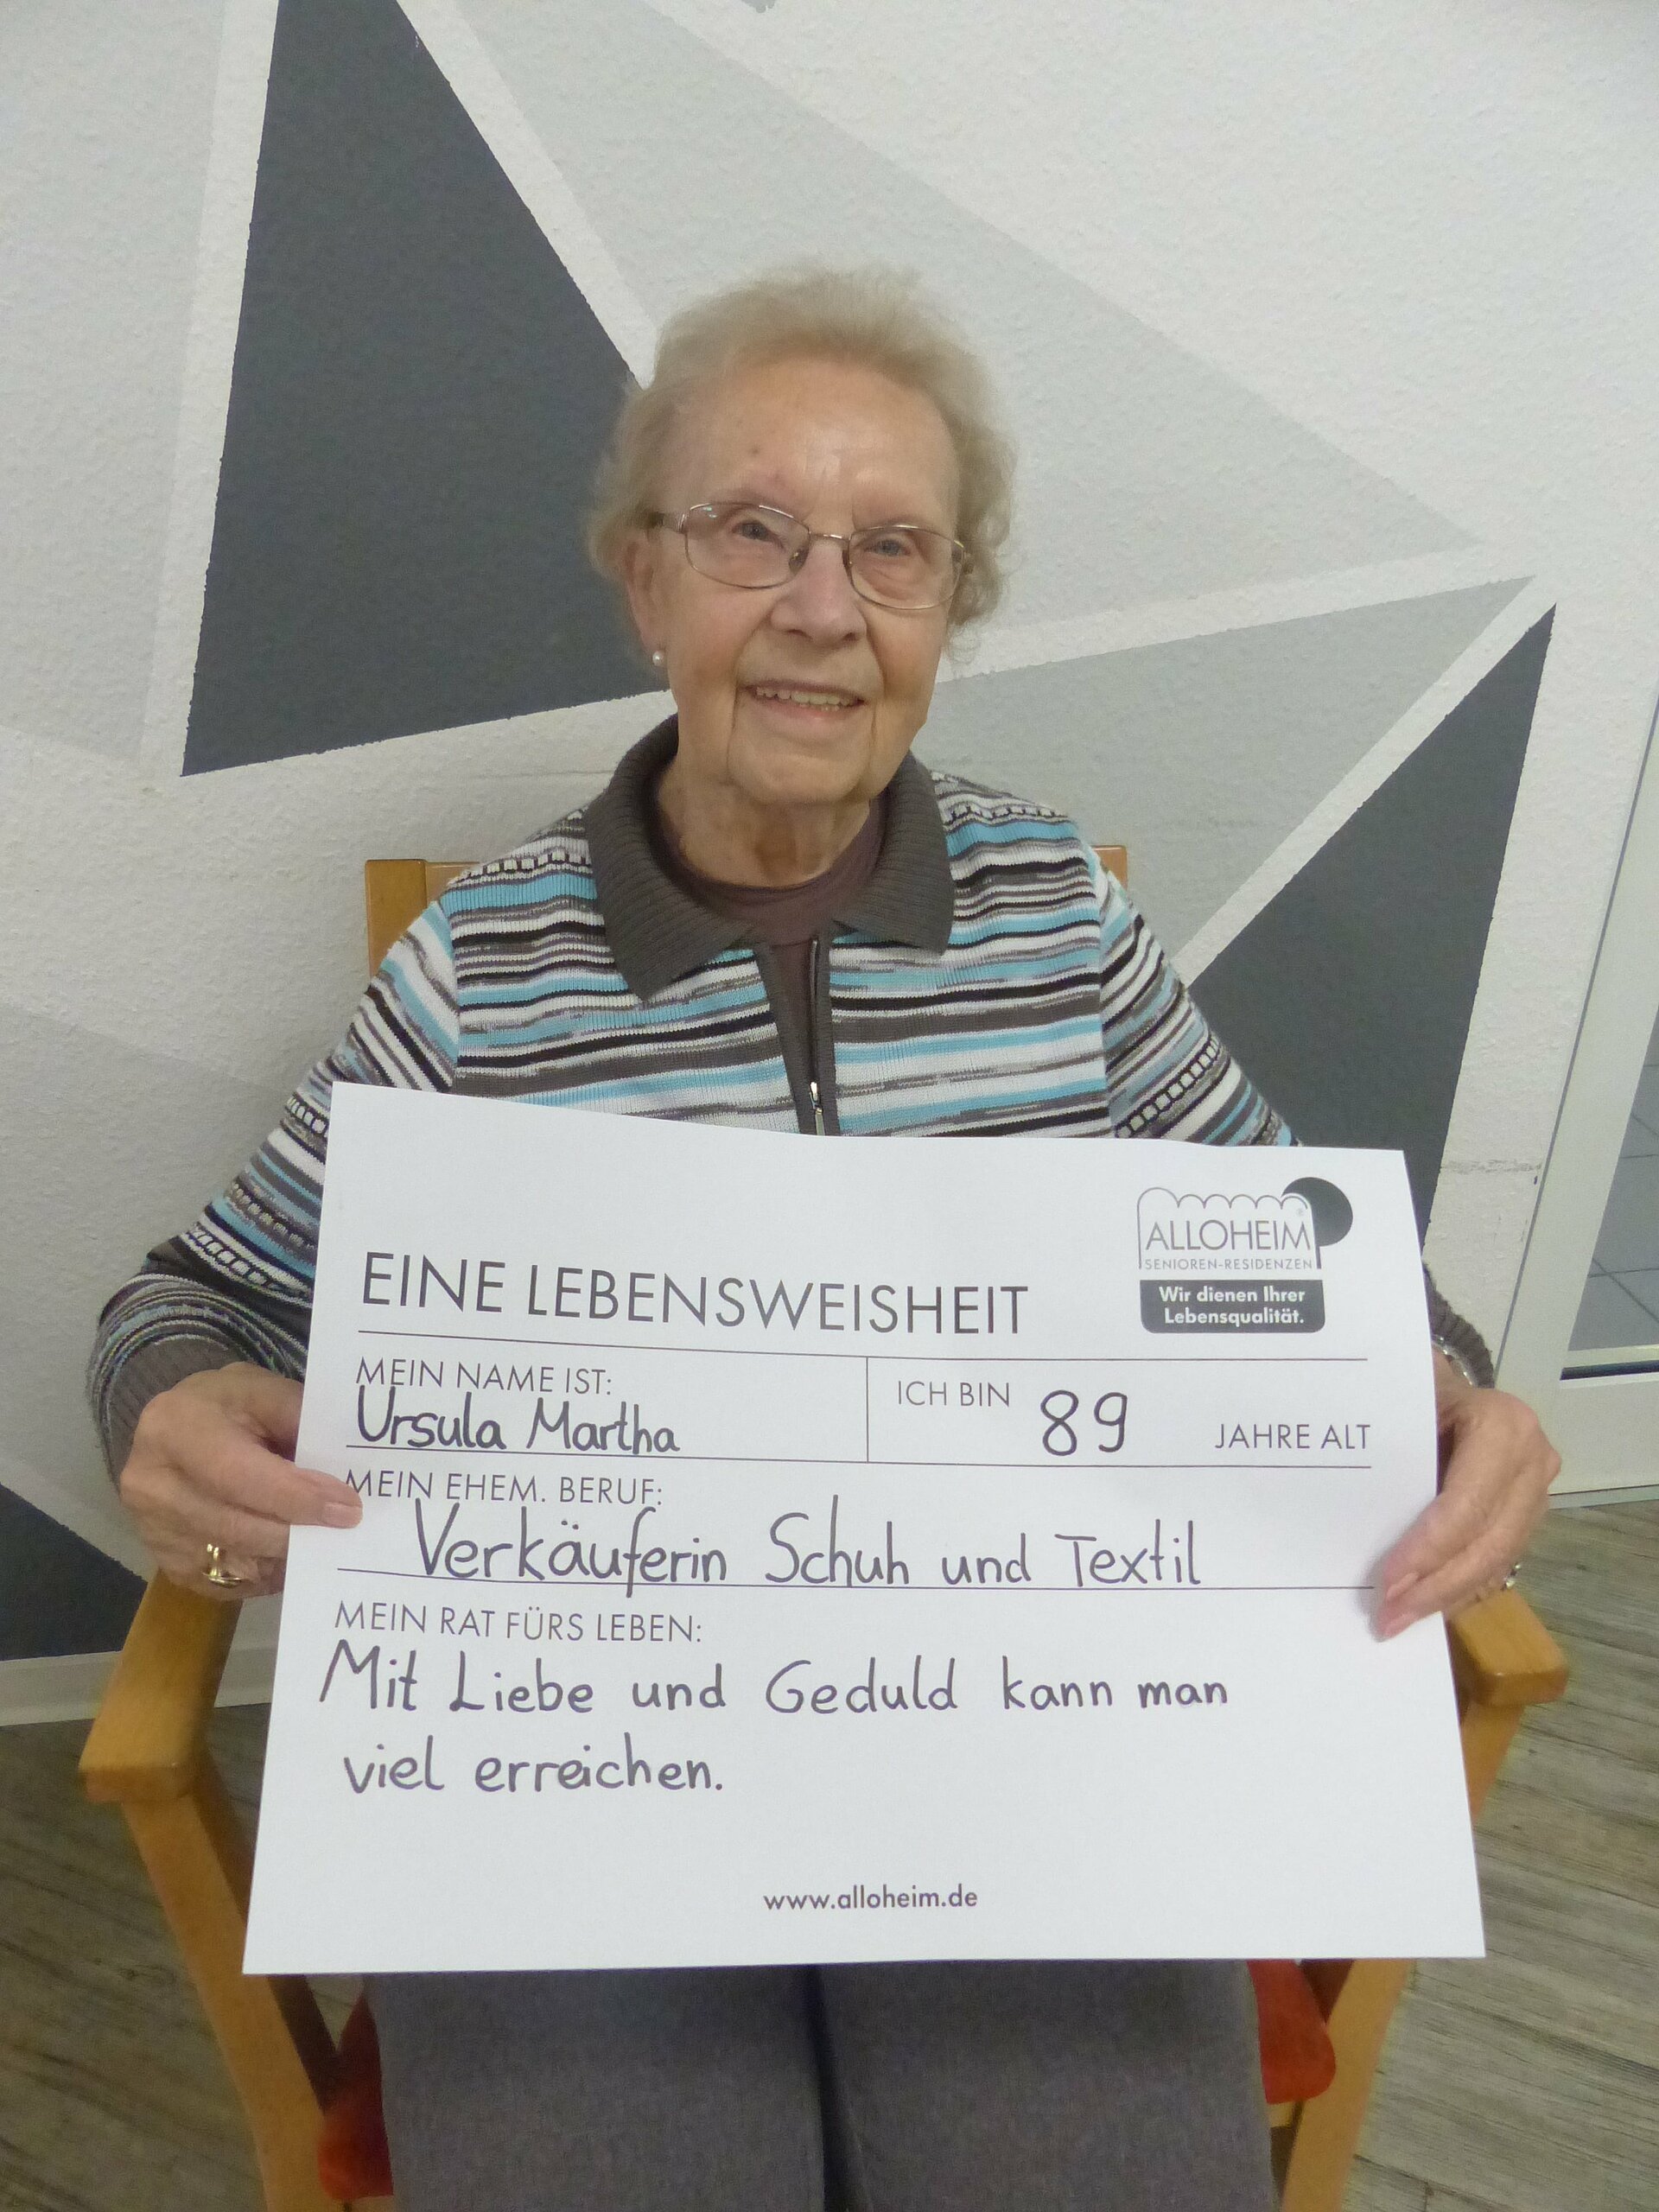 ALLOHEIM
SENIOREN-RESIDENZEN
Wir dienen Ihrer
Lebensqualität.
EINE LEBENSWEISHEIT
MEIN NAME IST:
Ursula Martha
ICH BIN 89 JAHRE ALT
MEIN EHEM. BERUF:
Verkäuferin Schuh und Textil
MEIN RAT FÜRS LEBEN:
Mit Liebe und Geduld kann man
viel erreichen.
www.alloheim.de